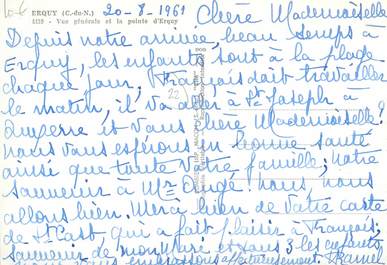 ERQUY (C.-du-N.)
1119 - Vue générale et la pointe d'Erquy
20-8-1961
Chère Mademoiselle
Depuis notre arrivée, beau temps à
Erquy, les enfants sont à la plage
chaque jour, François doit travailler
le matin, il va aller à St Joseph à
et vous chère Mademoiselle!
nous vous espérons en bonne santé
ainsi que toute votre famille; notre
souvenir à Mme Augé! nous, nous
allons bien. Merci bien de votre carte
de St Cast qui a fait plaisir à François,
souvenir de mon mari et tous 3 les enfants
vous embrassons affectueusement